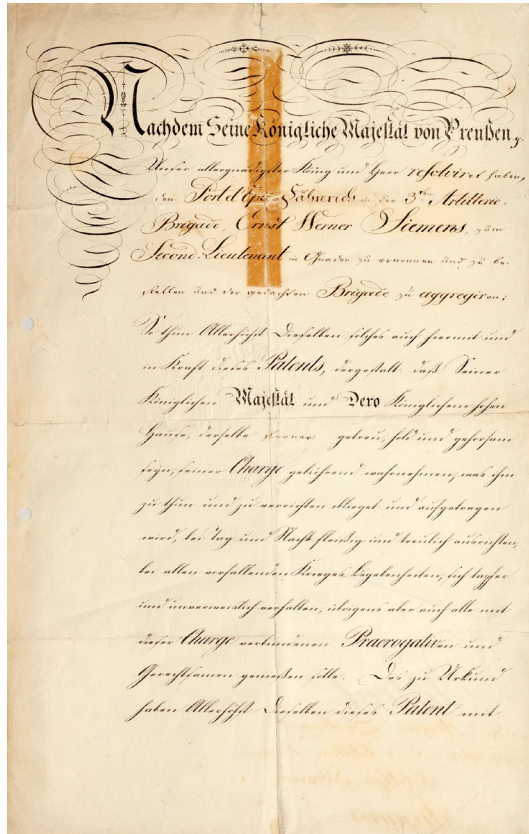 Nachdem Seine Königliche Majestät von Preußen,
Unser allergnädigster König und Herr resolviret haben,
den Port d'épée-Fähnrich in der 3ten Artillerie-
Brigade, Ernst Werner Siemens, zum
Second-Lieutenant in Gnaden zu ernennen und zu be-
stellen und der gedachten Brigade zu aggregiren;
So thun Allerhöchst Dieselben solches auch hiermit und
in Kraft dieses Patents, dergestalt daß Seiner
Königlichen Majestät und Dero Königlichem hohen
Hause, derselbe ferner getreu, hold und gehorsam
seyn, seiner Charge gebührend wahrnehmen, was ihm
zu thun und zu verrichten obliegt und aufgetragen
wird, bei Tag und Nacht fleißig und treulich ausrichten,
bei allen vorfallenden Krieges Begebenheiten, sich tapfer
und unverweislich verhalten, übrigens aber auch alle mit
dieser Charge verbundenen Praerogativen und
Gerechtsamen genießen solle. Des zu Urkund
haben Allerhöchst Dieselben dieses Patent mit